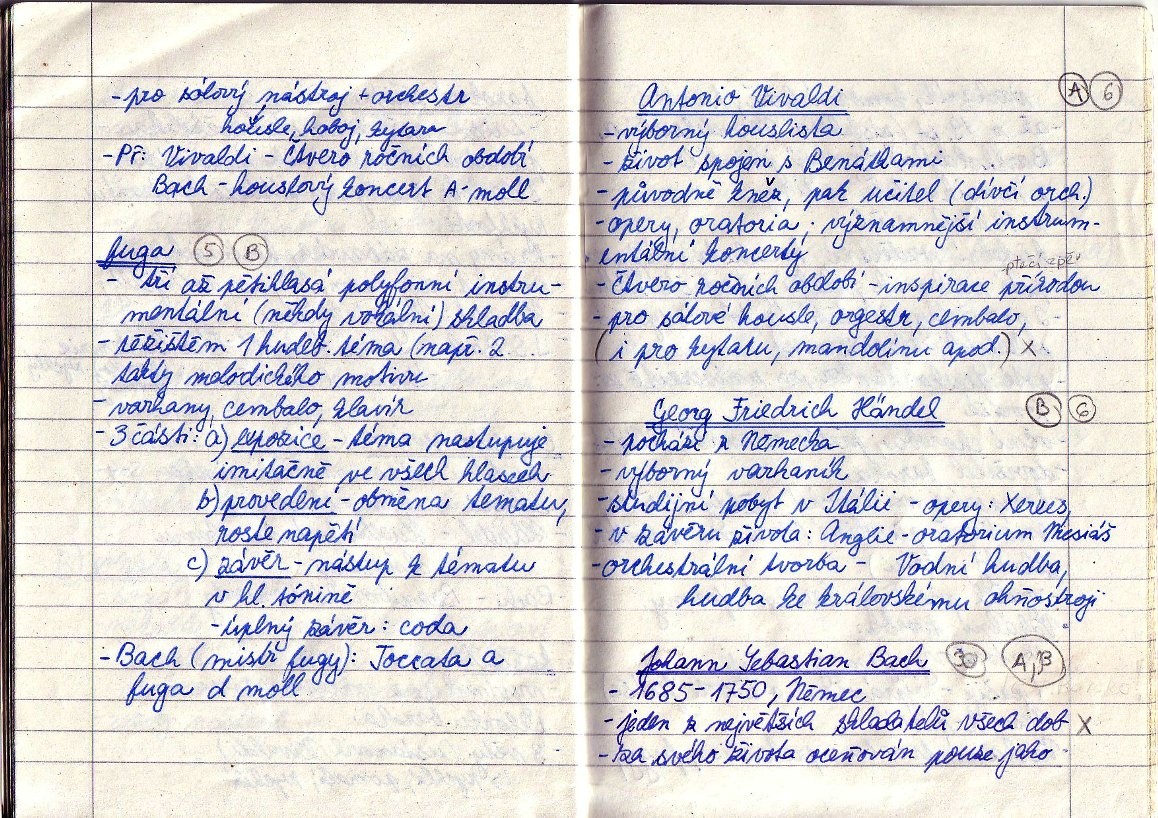 - pro sólový nástroj + orchestr
housle, hoboj, kytara
- Př: Vivaldi - Čtvero ročních období
Bach - houslový koncert A-moll
fuga 5 B
- tří až pětihlasá polyfonní instru-
mentální (někdy vokální) skladba
- těžištěm 1 hudeb. téma (např. 2
takty melodického motivu
- varhany, cembalo, klavír
- 3 části: a) expozice - téma nastupuje
imitačně ve všech hlasech
b) provedení - obměna tematu,
roste napětí
c) závěr - nástup k tématu
v hl. tónině
- úplný závěr: coda
- Bach (mistr fugy): Toccata a
fuga d moll
Antonio Vivaldi A 6
- výborný houslista
- život spojen s Benátkami
- původně kněz, pak učitel (dívčí orch.)
- opery, oratoria; významnější instrum-
entální koncerty
ptačí zpěv
- Čtvero ročních období - inspirace přírodou
- pro sólové housle, orgestr, cembalo,
(i pro kytaru, mandolínu apod.) X
Georg Friedrich Händel B 6
- pochází z Německa
- výborný varhaník
- studijní pobyt v Itálii - opery: Xerxes,
- v závěru života: Anglie - oratorium Mesiáš
- orchestrální tvorba - Vodní hudba,
hudba ke královskému ohňostroji
Johann Sebastian Bach 30 A, B
- 1685-1750, Němec
- jeden z největších skladatelů všech dob X
- za svého života oceňován pouze jako